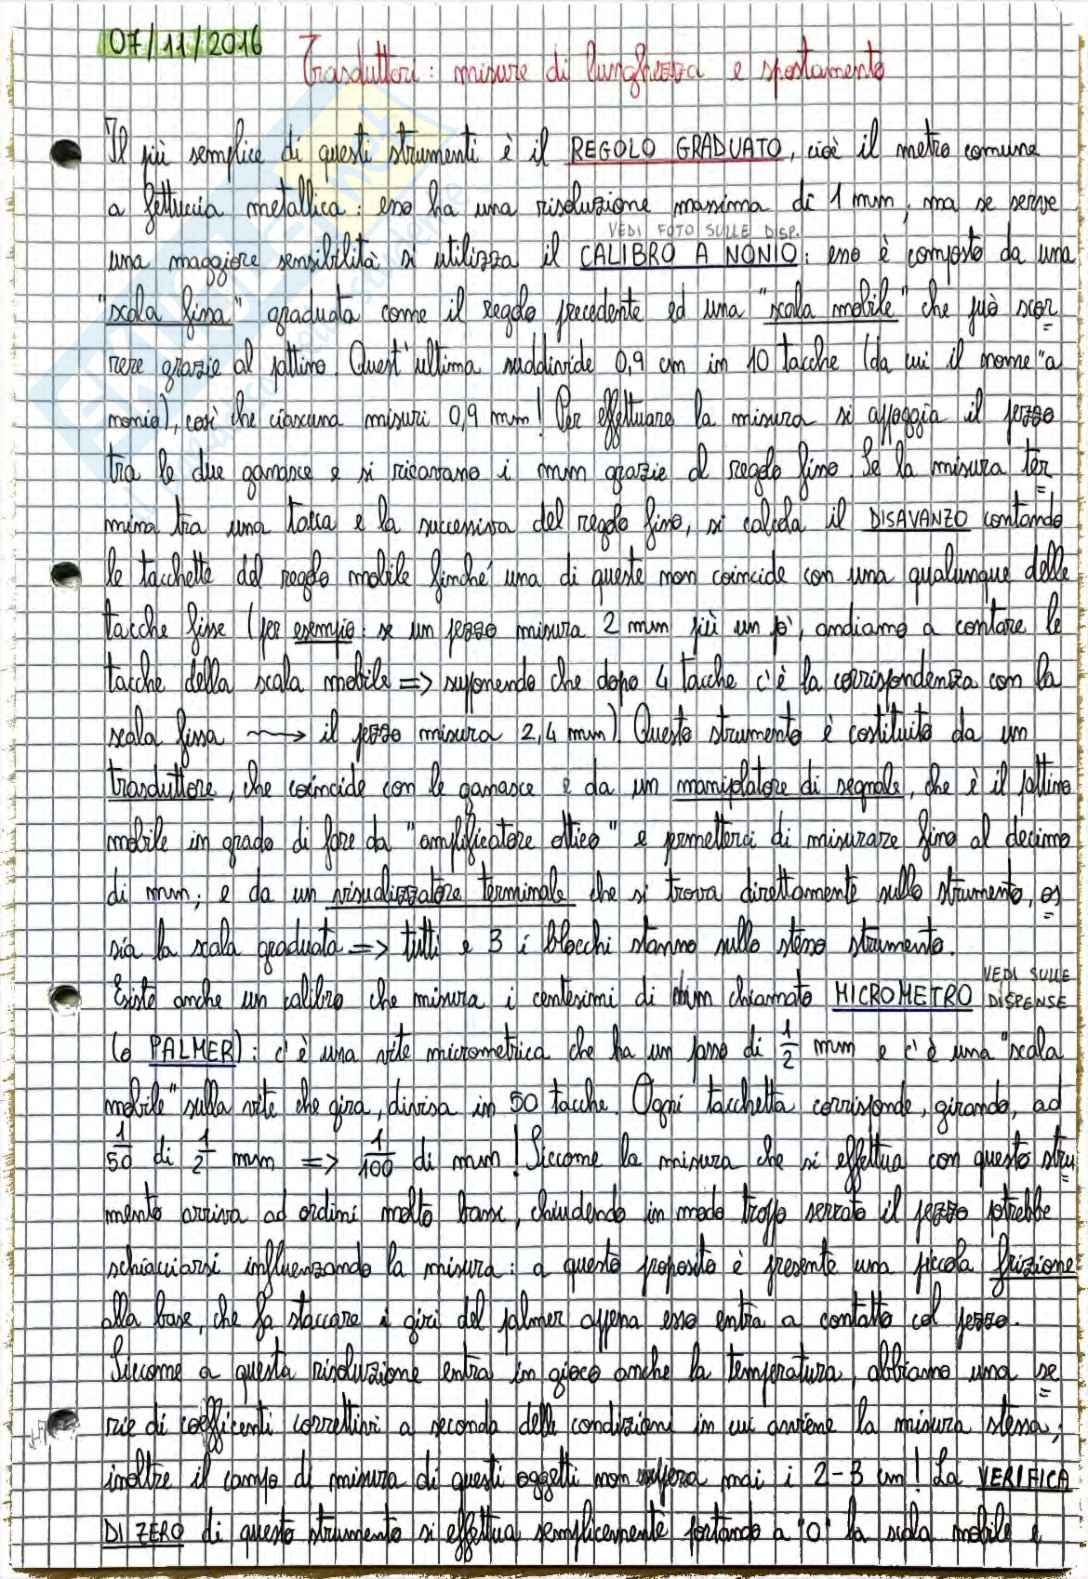 07/11/2016
Trasduttori: misure di lunghezza e spostamento
Il più semplice di questi strumenti è il REGOLO GRADUATO, cioè il metro comune
a fettuccia metallica: esso ha una risoluzione massima di 1 mm, ma se serve
VEDI FOTO SULLE DISP.
una maggiore sensibilità si utilizza il CALIBRO A NONIO: esso è composto da una
"scala fissa" graduata come il regolo precedente ed una "scala mobile" che può scor
rere grazie al pattino. Quest'ultima suddivide 0,9 cm in 10 tacche (da cui il nome "a
nonio), così che ciascuna misuri 0,9 mm! Per effettuare la misura si appoggia il pezzo
tra le due ganasce e si ricavano i mm grazie al regolo fisso. Se la misura ter
mina tra una tacca e la successiva del regolo fisso, si calcola il DISAVANZO contando
le tacchette del regolo mobile finché una di queste non coincide con una qualunque delle
tacche fisse (per esempio: se un pezzo misura 2 mm più un pò, andiamo a contare le
tacche della scala mobile => supponendo che dopo 4 tacche c'è la corrispondenza con la
scala fissa ⟿ il pezzo misura 2,4 mm). Questo strumento è costituito da un
trasduttore, che coincide con le ganasce e da un manipolatore di segnale, che è il pattino
mobile in grado di fare da "amplificatore ottico" e permetterci di misurare fino al decimo
di mm; e da un visualizzatore terminale che si trova direttamente sullo strumento, os
sia la scala graduata => tutti e 3 i blocchi stanno sullo stesso strumento.
Esiste anche un calibro che misura i centesimi di mm chiamato MICROMETRO VEDI SULLE DISPENSE
(o PALMER): c'è una vite micrometrica che ha un passo di 1/2 mm e c'è una "scala
mobile" sulla vite che gira, divisa in 50 tacche. Ogni tacchetta corrisponde, girando, ad
1/50 di 1/2 mm => 1/100 di mm! Siccome la misura che si effettua con questo stru
mento arriva ad ordini molto bassi, chiudendo in modo troppo serrato il pezzo potrebbe
schiacciarsi influenzando la misura: a questo proposito è presente una piccola frizione
alla base, che fa staccare i giri del palmer appena esso entra a contatto col pezzo.
Siccome a questa risoluzione entra in gioco anche la temperatura, abbiamo una se
rie di coefficenti correttivi a seconda delle condizioni in cui avviene la misura stessa;
inoltre il campo di misura di questi oggetti non supera mai i 2-3 cm! La VERIFICA
DI ZERO di questo strumento si effettua semplicemente portando a "0" la scala mobile e